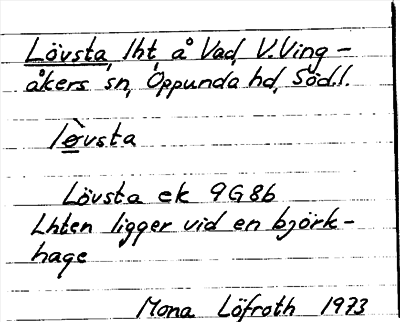 Lövsta, lht, å Vad, V. Ving-
åkers sn, Oppunda hd, Söd.l.
lø̀vsta
Lövsta ek 9G8b
Lhten ligger vid en björk-
hage
Mona Löfroth 1973